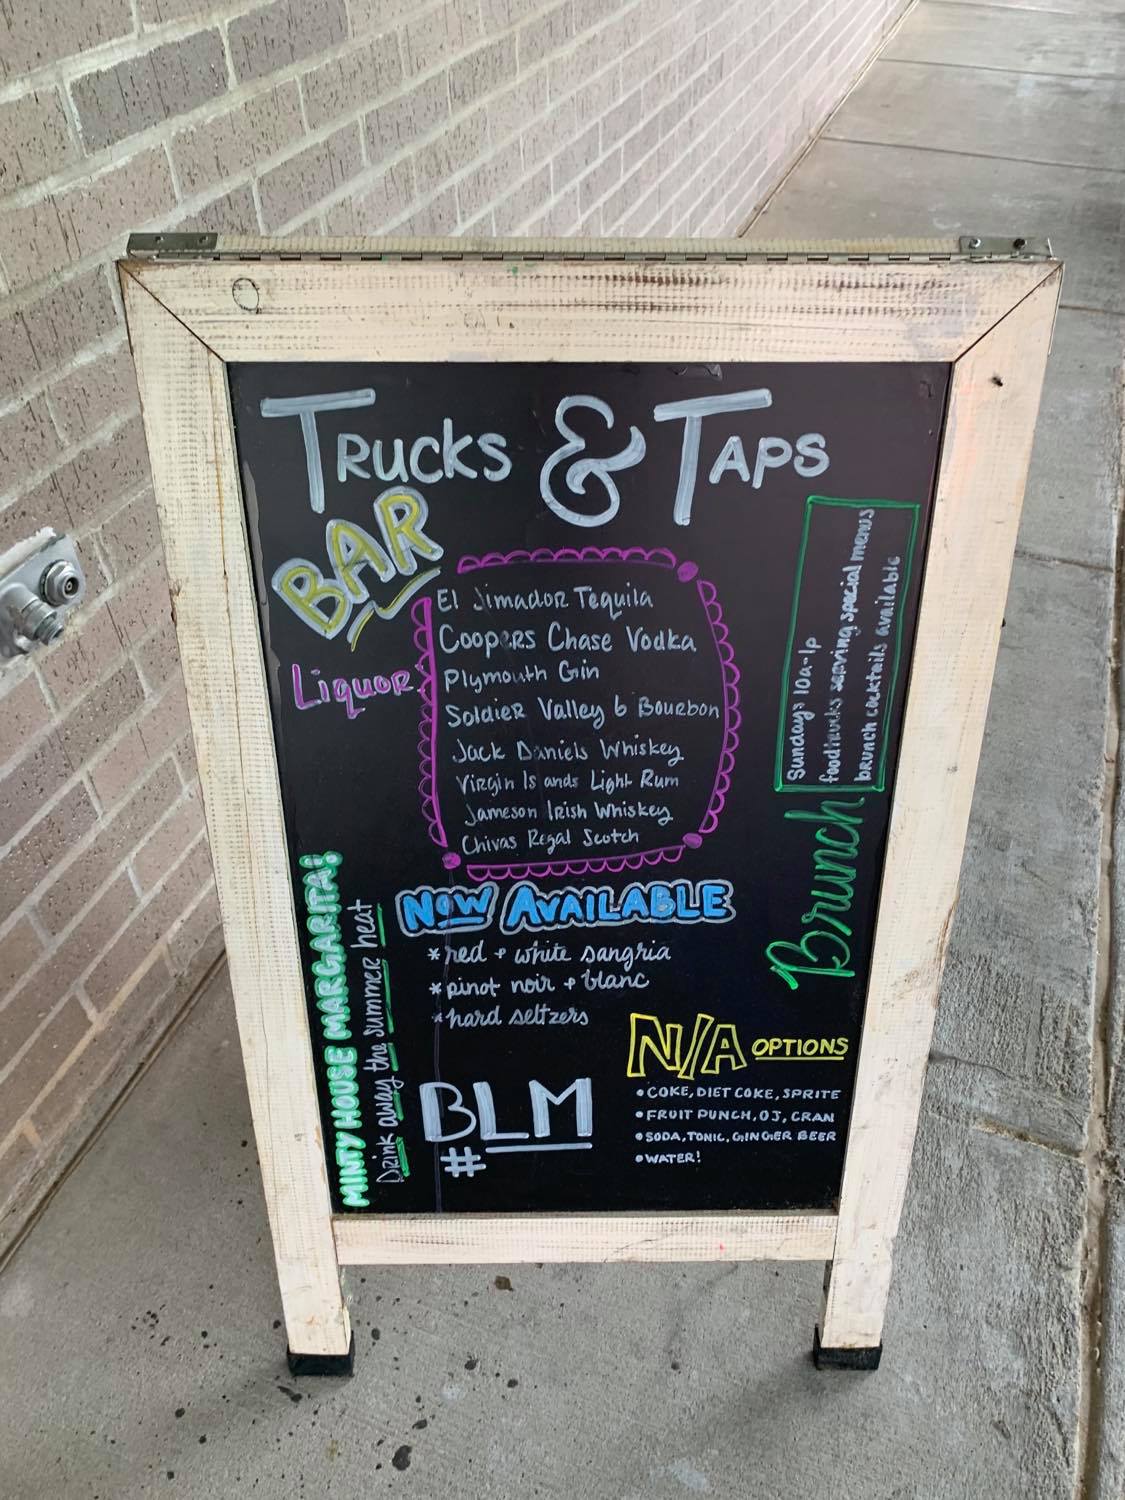 TRUCKS & TAPS
BAR
Liquor
El Jimador Tequila
Coopers Chase Vodka
Plymouth Gin
Soldier Valley 6 Bourbon
Jack Daniels Whiskey
Virgin Islands Light Rum
Jameson Irish Whiskey
Chivas Regal Scotch
Brunch
Sundays 10a-1p
foodtrucks serving special menus
brunch cocktails available
MINTY HOUSE MARGARITA!
Drink away the summer heat
NOW AVAILABLE
*red + white sangria
*pinot noir + blanc
*hard seltzers
N/A OPTIONS
•COKE, DIET COKE, SPRITE
•FRUIT PUNCH, OJ, CRAN
•SODA, TONIC, GINGER BEER
•WATER!
BLM
#